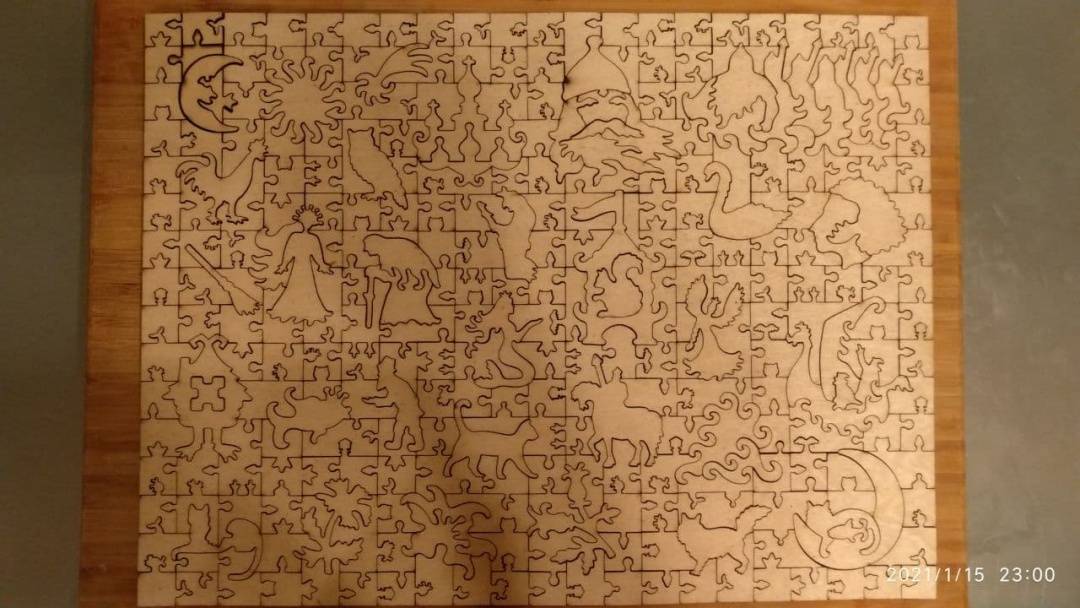 2021/1/15 23:00